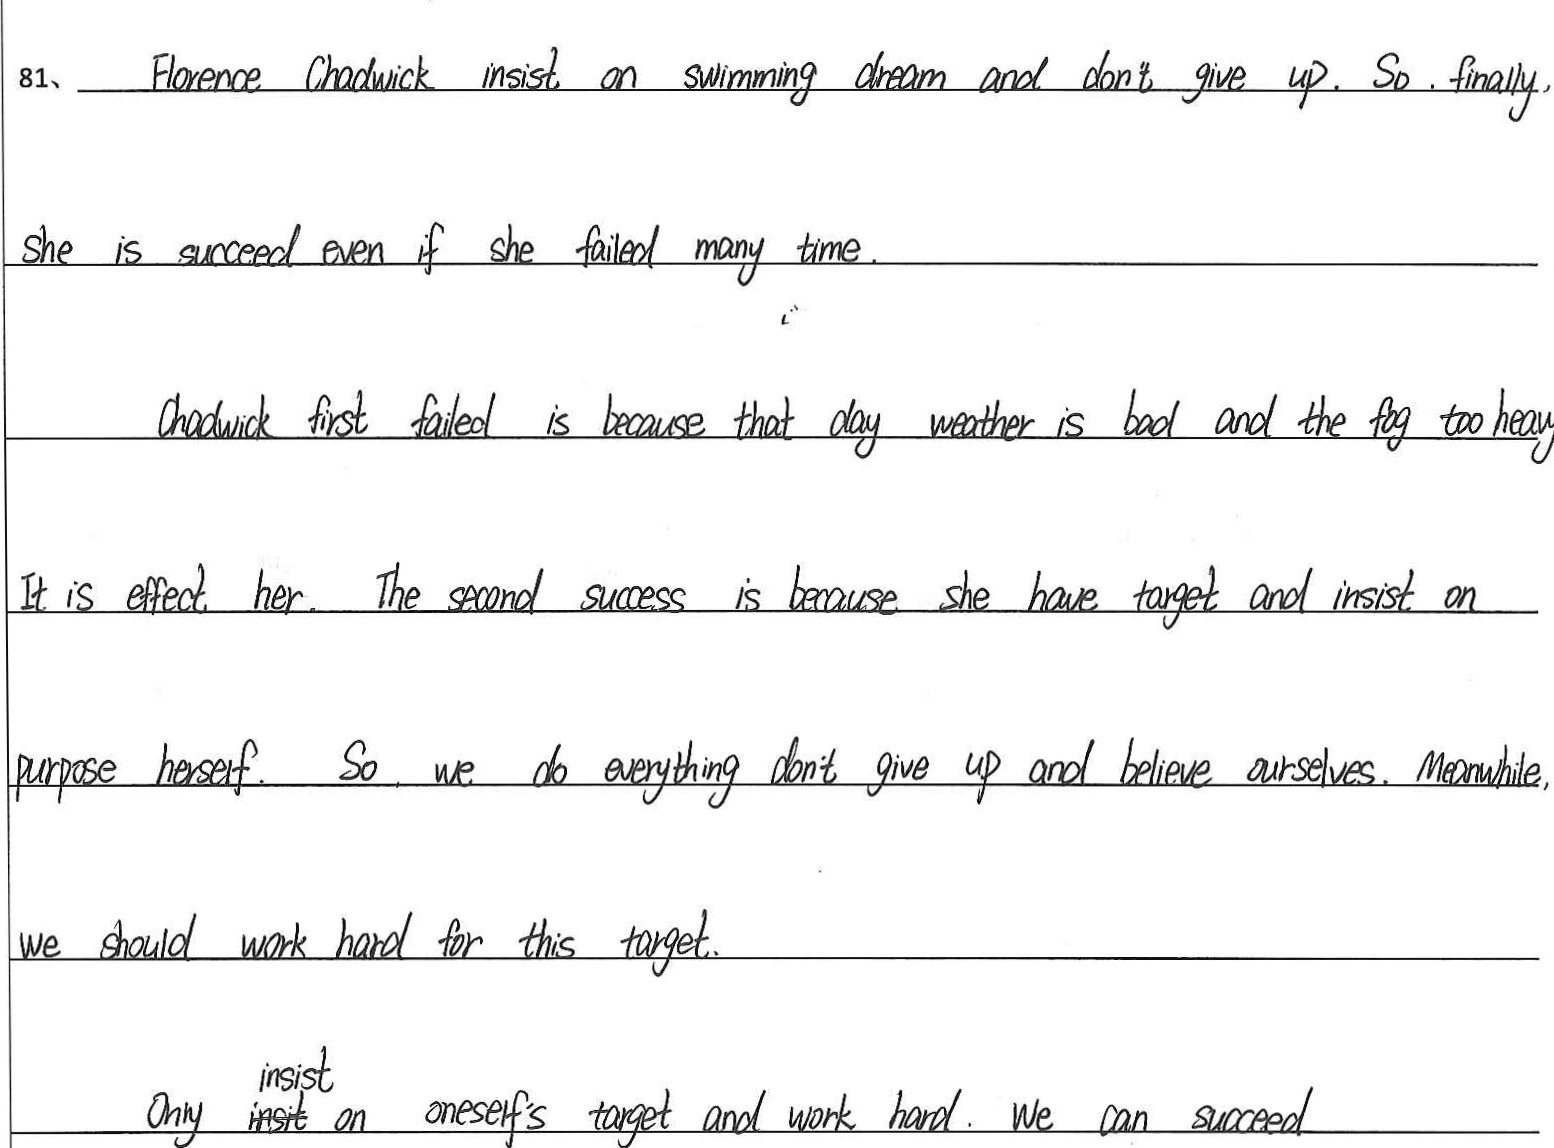 81、 Florence Chadwick insist on swimming dream and don't give up. So, finally,
she is succeed even if she failed many time.
Chadwick first failed is because that day weather is bad and the fog too heavy
It is effect her. The second success is because she have target and insist on
purpose herself. So, we do everything don't give up and believe ourselves. Meanwhile,
we should work hard for this target.
insist
Only insit on oneself's target and work hard. We can succeed